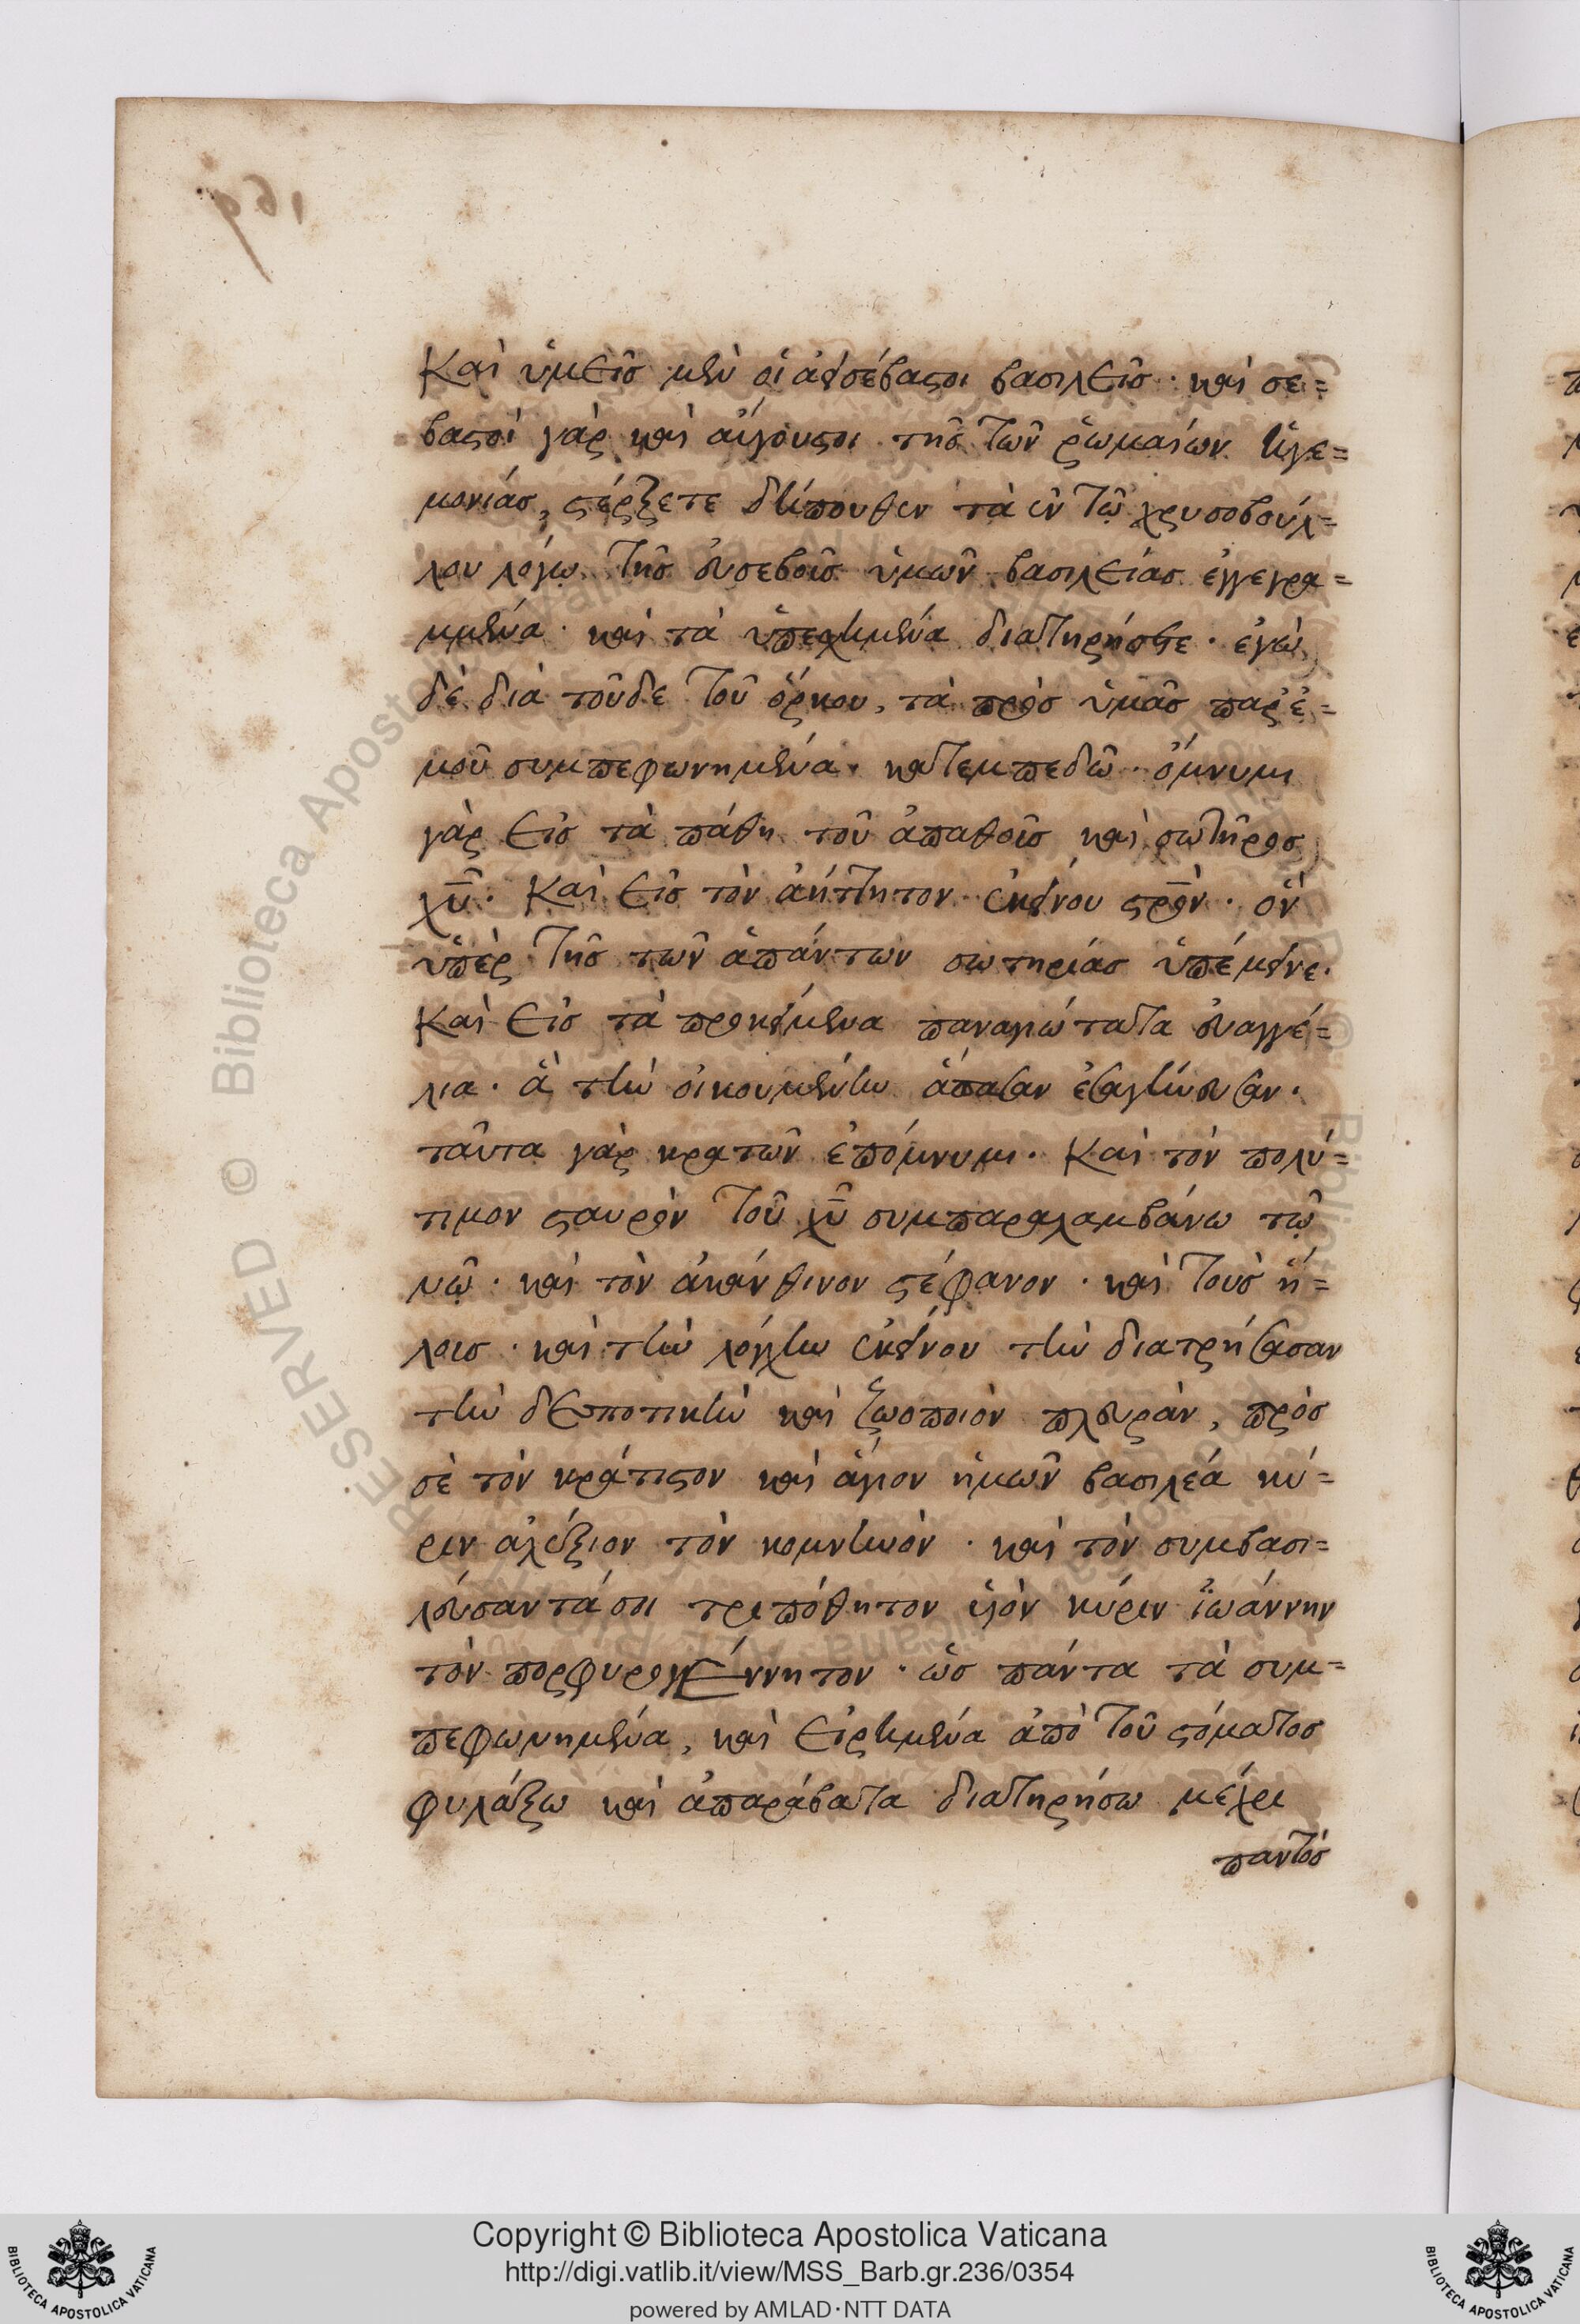 Καὶ ὑμεῖς μὲν οἱ ἀεισέβαστοι βασιλεῖς· καὶ σε=
βαστοὶ γὰρ καὶ αὔγουστοι τῆς τῶν ῥωμαίων ἡγε=
μονίας, στέρξετε δήπουθεν τὰ ἐν τῷ χρυσοβούλ=
λου λόγῳ τῆς εὐσεβοῦς ὑμῶν βασιλείας ἐγγεγρα=
μμένα· καὶ τὰ ὑπεσχημένα διατηρήσετε· ἐγὼ
δὲ διὰ τοῦδε τοῦ ὅρκου, τὰ πρὸς ὑμᾶς παρ' ἐ=
μοῦ συμπεφωνημένα· κατεμπεδῶ· ὄμνυμι
γὰρ εἰς τὰ πάθη τοῦ ἀπαθοῦς καὶ σωτῆρος
χῦ· Καὶ εἰς τὸν ἀήττητον ἐκείνου στρὸν· ὃν
ὑπὲρ τῆς τῶν ἁπάντων σωτηρίας ὑπέμεινε·
Καὶ εἰς τὰ προκείμενα παναγιώτατα εὐαγγέ=
λια· ἃ τὴν οἰκουμένην ἅπασαν ἐσαγήνευσαν·
ταῦτα γὰρ κρατῶν ἐπόμνυμι· Καὶ τὸν πολύ=
τιμον σταυρὸν τοῦ χῦ συμπαραλαμβάνω τῷ
νῷ· καὶ τὸν ἀκάνθινον στέφανον· καὶ τοὺς ἥ=
λους· καὶ τὴν λόγχην ἐκείνου τὴν διατρήσασαν
τὴν δεσποτικὴν καὶ ζωοποιὸν πλευρὰν, πρός
σὲ τὸν κράτιστον καὶ ἅγιον ἡμῶν βασιλέα κύ=
ριν ἀλέξιον τὸν κομνηνὸν· καὶ τὸν συμβασι=
λεύσαντά σοι τριπόθητον υἱὸν κύριν ἰωάννην
τὸν πορφυρογέννητον· ὡς πάντα τὰ συμ=
πεφωνημένα, καὶ εἰρημένα ἀπὸ τοῦ στόματος
φυλάξω καὶ ἀπαράβατα διατηρήσω μέχρι
παντὸς
RESERVED © Biblioteca Apostolica Vaticana
Copyright © Biblioteca Apostolica Vaticana
http://digi.vatlib.it/view/MSS_Barb.gr.236/0354
powered by AMLAD·NTT DATA
BIBLIOTECA APOSTOLICA VATICANA
BIBLIOTECA APOSTOLICA VATICANA